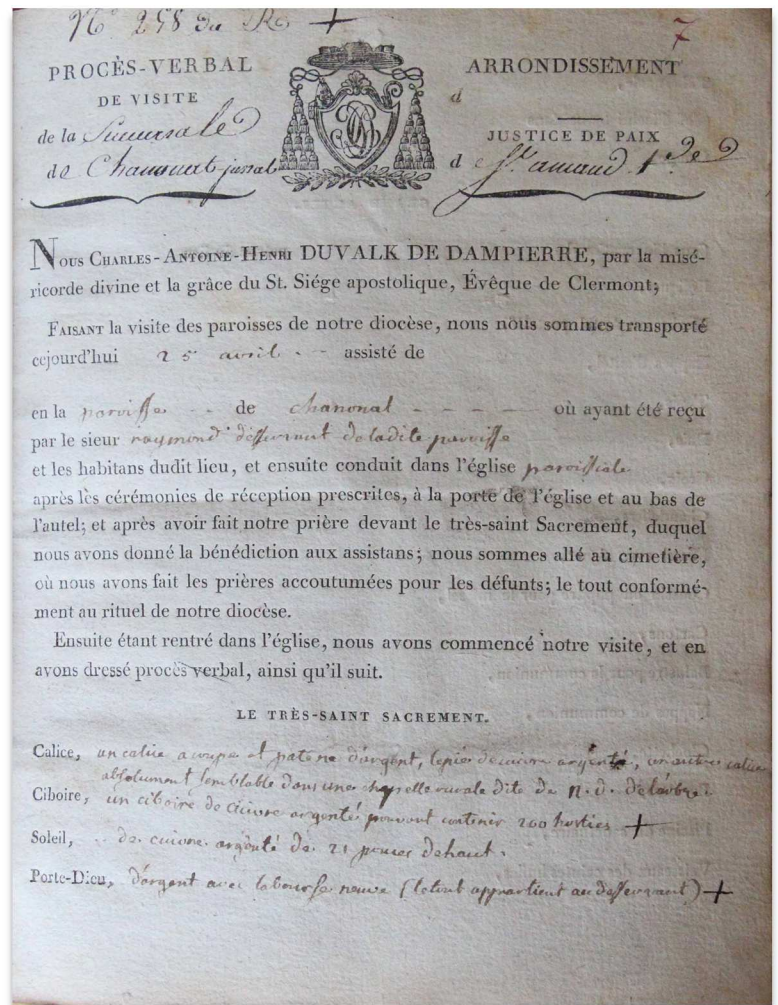 N° 258 du R. +
7
PROCÈS-VERBAL
DE VISITE
de la Succursale
de Chanonat jussat
ARRONDISSEMENT
d
JUSTICE DE PAIX
de St. amand
NOUS CHARLES-ANTOINE-HENRI DUVALK DE DAMPIERRE, par la misé-
ricorde divine et la grâce du St. Siége apostolique, Évêque de Clermont;
FAISANT la visite des paroisses de notre diocèse, nous nous sommes transporté
cejourd'hui 25 avril - - assisté de
en la paroisse - - de chanonat - - - - où ayant été reçu
par le sieur raymond desservant de ladite paroisse
et les habitans dudit lieu, et ensuite conduit dans l'église paroissiale
après les cérémonies de réception prescrites, à la porte de l'église et au bas de
l'autel; et après avoir fait notre prière devant le très-saint Sacrement, duquel
nous avons donné la bénédiction aux assistans; nous sommes allé au cimetière,
où nous avons fait les prières accoutumées pour les défunts; le tout conformé-
ment au rituel de notre diocèse.
Ensuite étant rentré dans l'église, nous avons commencé notre visite, et en
avons dressé procès verbal, ainsi qu'il suit.
LE TRÈS-SAINT SACREMENT.
Calice, un calice a coupe et patene d'argent, le pied de cuivre argenté, un autre calice
absolument semblable dans une chapelle rurale dite de n. d. de l'arbre.
Ciboire, un ciboire de cuivre argenté pouvant contenir 200 hosties +
Soleil, - de cuivre argenté de 21 pouces de haut.
Porte-Dieu, d'argent avec la bourse neuve (le tout appartient au desservant) +